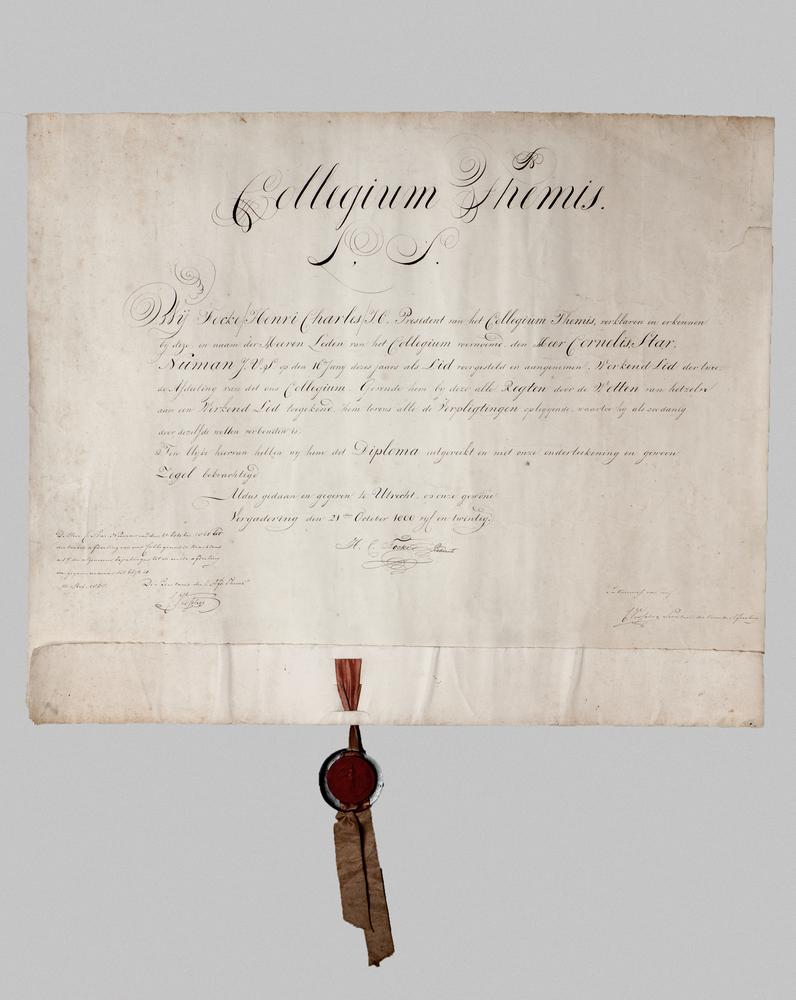 Collegium Themis.
L. S.
Wij Focke/Henri Charles/J.C. President van het Collegium Themis, verklaren en erkennen
by deze, en naam der Heeren Leden van het Collegium voornoemd, den Heer Cornelis Star,
Numan J.U.S op den 16 Juny dezes jaars als Lid voorgesteld en aangenomen, Werkend Lid der twee
de Afdeeling van dit ons Collegium. Gevende hem by deze alle Regten door de Wetten van hetzelve
aan een Werkend Lid toegekend, hem tevens alle de Verpligtingen opleggende, waartoe hy als zoodanig
door dezelfde wetten verbonden is.
Ten blyke hiervan hebben wy hem dit Diploma uitgereikt en met onze onderteekening en gewoon
Zegel bekrachtigd
Aldus gedaan en gegeven te Utrecht, op onze gewone
Vergadering den 21sten October 1800 vijf en twintig.
H. C. Focke President
De Heer C. Star Numan
de eerste afdeeling